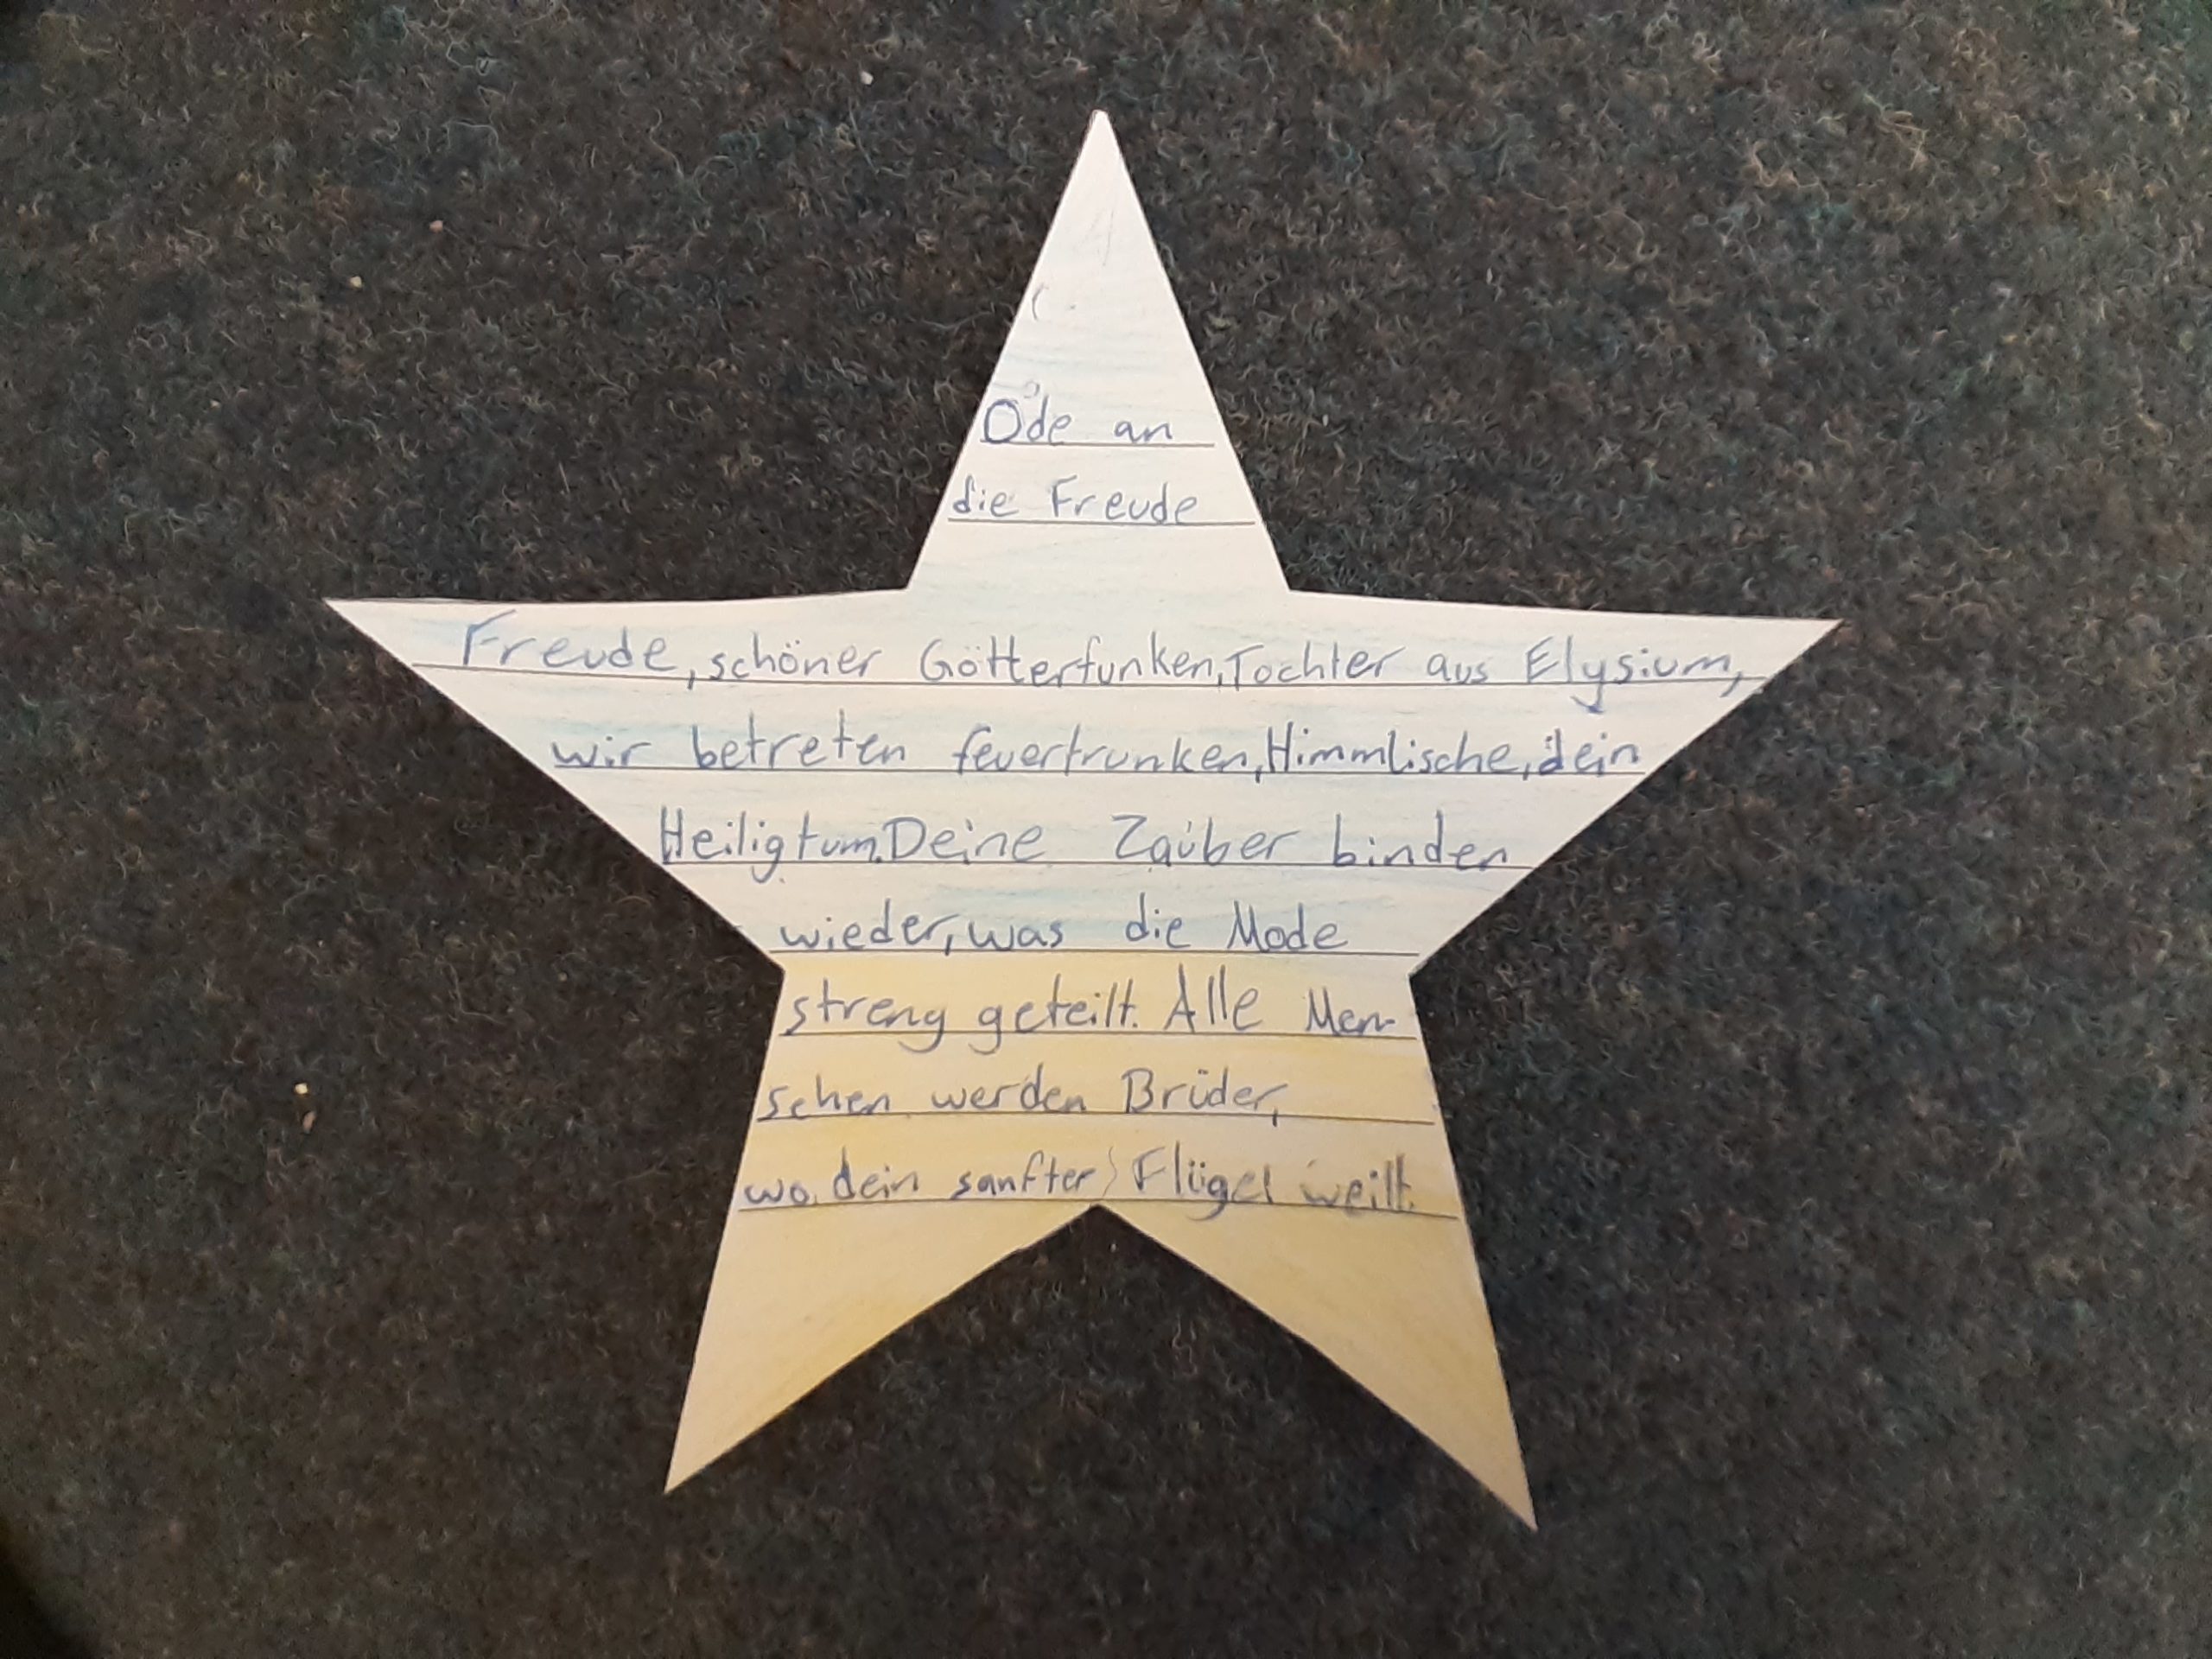 Ode an
die Freude
Freude, schöner Götterfunken, Tochter aus Elysium,
wir betreten feuertrunken, Himmlische, dein
Heiligtum. Deine Zauber binden
wieder, was die Mode
streng geteilt. Alle Men-
schen werden Brüder,
wo dein sanfter Flügel weilt.